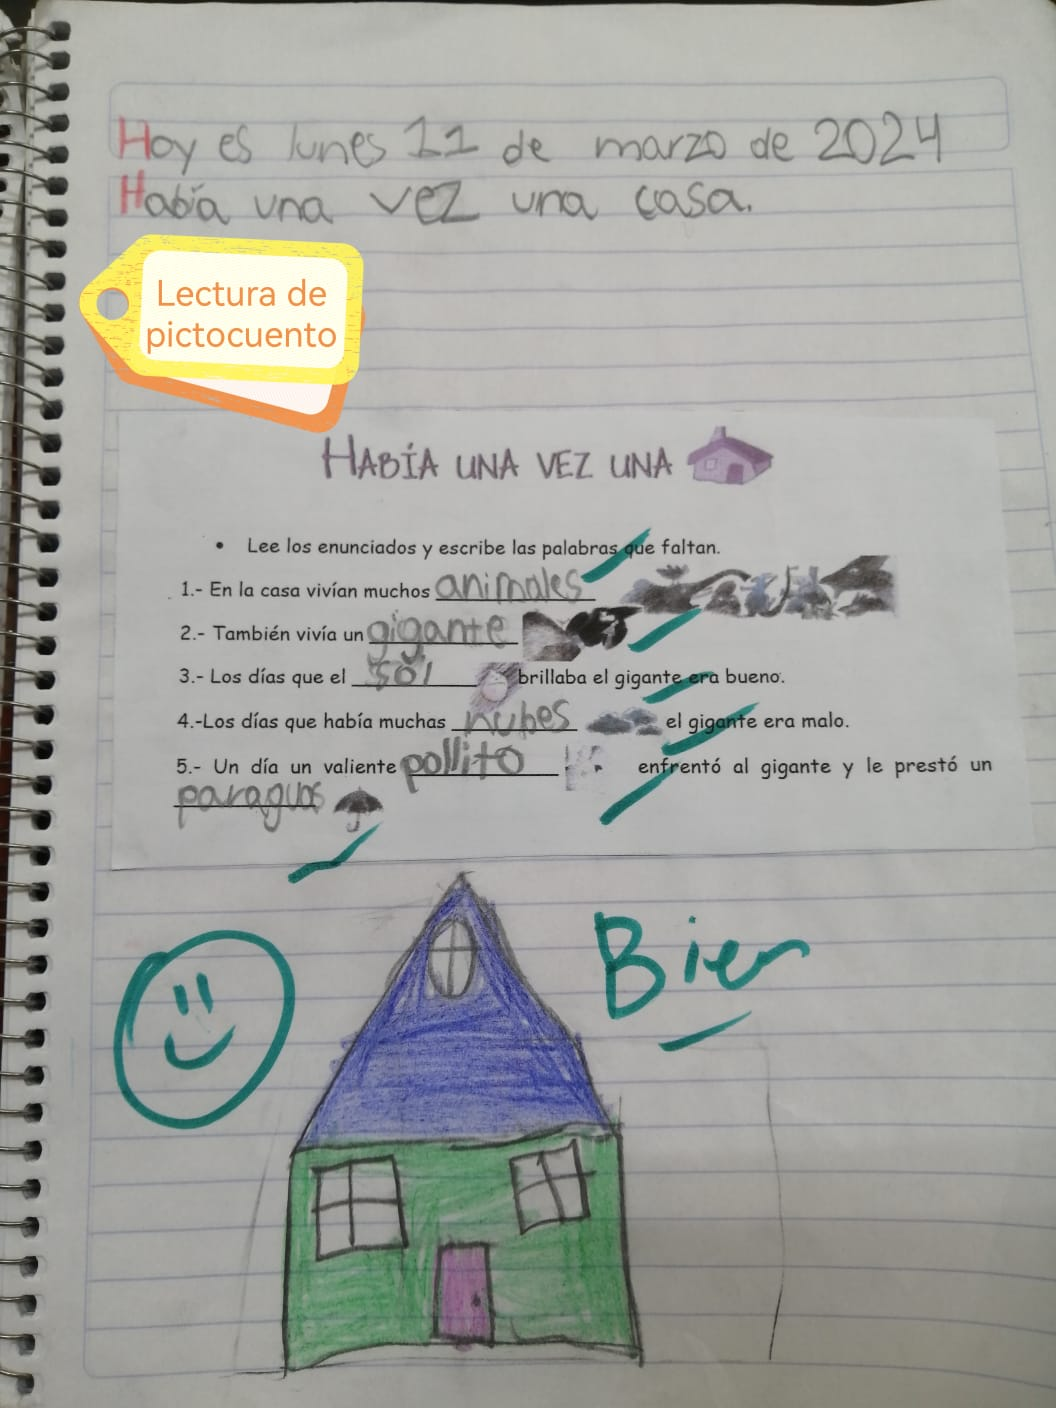 Hoy es lunes 11 de marzo de 2024
Había una vez una casa.
Lectura de
pictocuento
HABÍA UNA VEZ UNA
• Lee los enunciados y escribe las palabras que faltan.
1.- En la casa vivían muchos animales
2.- También vivía un gigante
3.- Los días que el sol brillaba el gigante era bueno.
4.-Los días que había muchas nubes el gigante era malo.
5.- Un día un valiente pollito enfrentó al gigante y le prestó un
paraguas
Bien